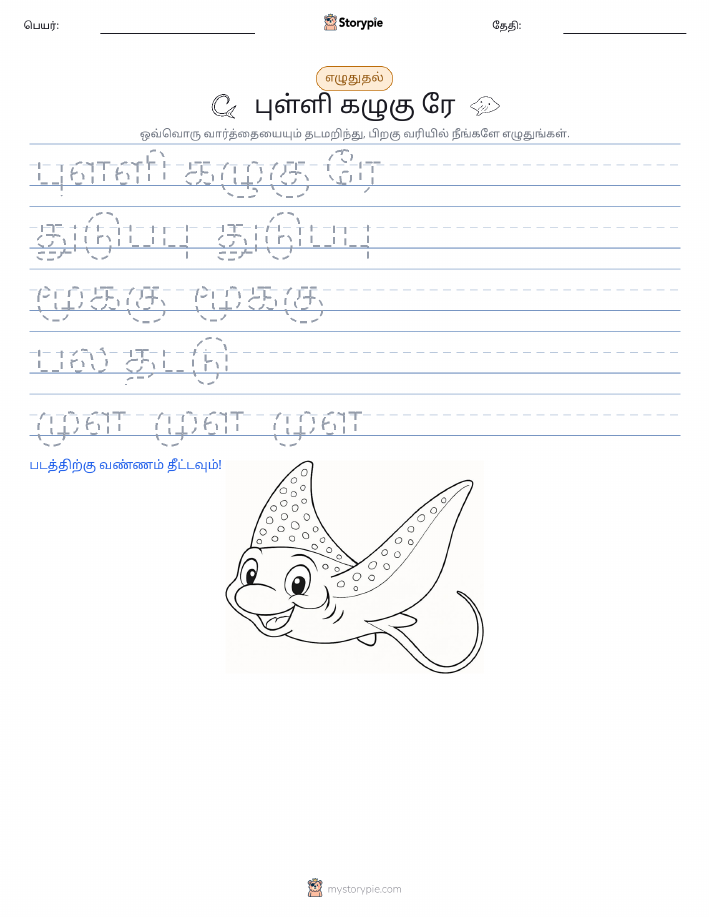 பெயர்:
Storypie
தேதி:
எழுதுதல்
புள்ளி கழுகு ரே
ஒவ்வொரு வார்த்தையையும் தடமறிந்து, பிறகு வரியில் நீங்களே எழுதுங்கள்.
புள்ளி கழுகு ரே
துடுப்பு துடுப்பு
மூக்கு மூக்கு
பல் தட்டு
முள் முள் முள்
படத்திற்கு வண்ணம் தீட்டவும்!
mystorypie.com